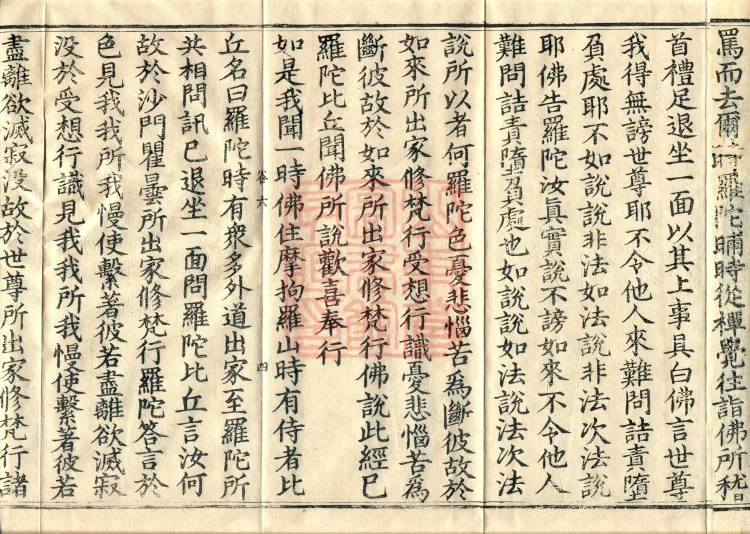 罵而去爾時羅陀晡時從禪覺往詣佛所稽
首禮足退坐一面以其上事具白佛言世尊
我得無謗世尊耶不令他人來難問詰責墮
負處耶不如說說非法如法說非法次法說
耶佛告羅陀汝真實說不謗如來不令他人
難問詰責墮負處也如說說如法說法次法
說所以者何羅陀色憂悲惱苦為斷彼故於
如來所出家修梵行受想行識憂悲惱苦為
斷彼故於如來所出家修梵行佛說此經已
羅陀比丘聞佛所說歡喜奉行
谷六 四
如是我聞一時佛住摩拘羅山時有侍者比
丘名曰羅陀時有眾多外道出家至羅陀所
共相問訊已退坐一面問羅陀比丘言汝何
故於沙門瞿曇所出家修梵行羅陀答言於
色見我我所我慢使繫著彼若盡離欲滅寂
沒於受想行識見我我所我慢使繫著彼若
盡離欲滅寂沒故於世尊所出家修梵行諸